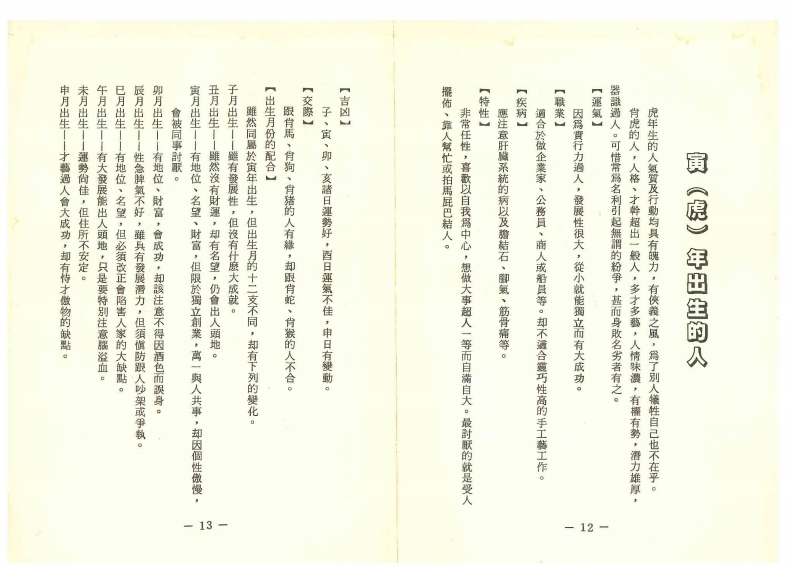 寅（虎）年出生的人
虎年生的人氣質及行動均具有魄力，有俠義之風，爲了別人犧牲自己也不在乎。
肖虎的人，人格、才幹超出一般人，多才多藝，人情味濃，有權有勢，潛力雄厚，
器識過人。可惜常爲名利引起無謂的紛爭，甚而身敗名劣者有之。
【運氣】
因爲實行力過人，發展性很大，從小就能獨立而有大成功。
【職業】
適合於做企業家、公務員、商人或船員等。却不適合靈巧性高的手工藝工作。
【疾病】
應注意肝臟系統的病以及膽結石、腳氣、筋骨痛等。
【特性】
非常任性，喜歡以自我爲中心，想做大事超人一等而自滿自大。最討厭的就是受人
擺佈、靠人幫忙或拍馬屁巴結人。
— 12 —
【吉凶】
子、寅、卯、亥諸日運勢好，酉日運氣不佳，申日有變動。
【交際】
跟肖馬、肖狗、肖猪的人有緣，却跟肖蛇、肖猴的人不合。
【出生月份的配合】
雖然同屬於寅年出生，但出生月的十二支不同，却有下列的變化。
子月出生——雖有發展性，但沒有什麼大成就。
丑月出生——雖然沒有財運，却有名望，仍會出人頭地。
寅月出生——有地位、名望、財富，但限於獨立創業，萬一與人共事，却因個性傲慢，
會被同事討厭。
卯月出生——有地位、財富，會成功，却該注意不得因酒色而誤身。
辰月出生——性急脾氣不好，雖具有發展潛力，但須愼防跟人吵架或爭執。
巳月出生——有地位、名望，但必須改正會陷害人家的大缺點。
午月出生——有大發展能出人頭地，只是要特別注意腦溢血。
未月出生——運勢尙佳，但住所不安定。
申月出生——才藝過人會大成功，却有恃才傲物的缺點。
— 13 —